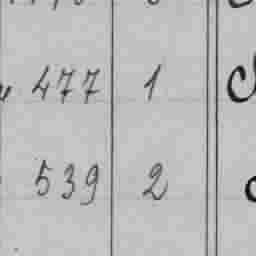 477 1
539 2